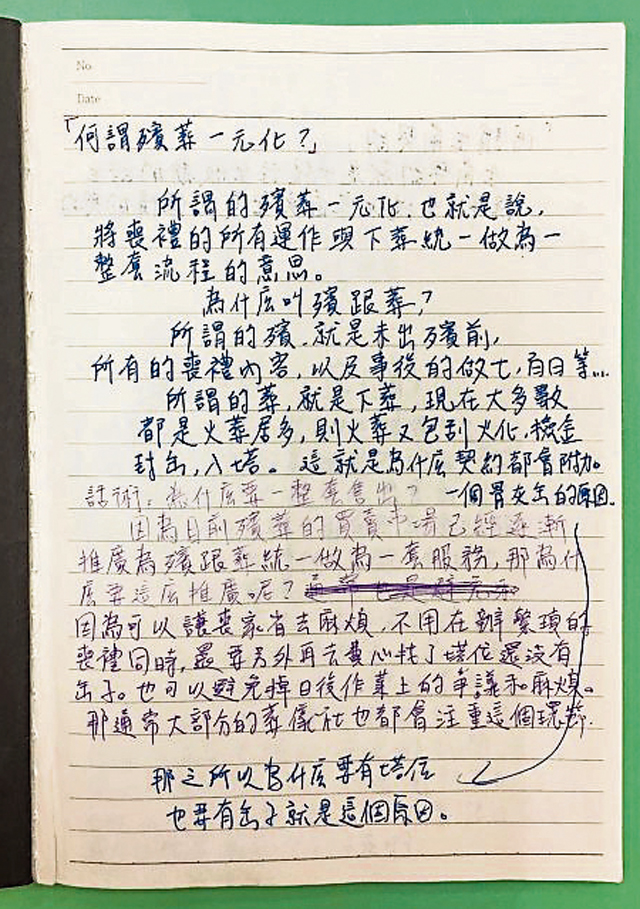 No
Date
「何謂殯葬一元化?」
所謂的殯葬一元化,也就是說,
將喪禮的所有運作與下葬統一做為一
整套流程的意思。
為什么叫殯跟葬?
所謂的殯,就是未出殯前,
所有的喪禮內容,以及事後的做七,百日等...
所謂的葬,就是下葬,現在大多數
都是火葬居多,則火葬又包刮火化,撿金
封缶,入塔。這就是為什庅契約都會附加。
話術:為什庅要一整套售出? 一個骨灰缶的原因
因為目前殯葬的買賣市場已經逐漸
推廣為殯跟葬統一做為一套服務,那為什
庅要這庅推廣呢?
因為可以讓喪家省去麻煩,不用在辦繁瑣的
喪禮同時,最要另外再去費心找了塔位還沒有
缶子。也可以避免掉日後作業上的爭議和麻煩。
那通常大部分的葬儀社也都會注重這個環節.
那之所以為什庅要有塔位
也要有缶子就是這個原因。